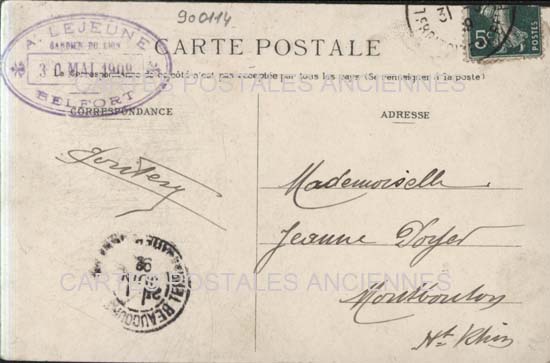 900114.
A. LEJEUNE
GARDIEN DU LION
30 MAI 1909
BELFORT
CARTE POSTALE
La Correspondance de ce côté n'est pas acceptée par tous les pays (Se renseigner à la poste)
CARTES POSTALES ANCIENNES
CORRESPONDANCE
ADRESSE
5
POSTES
Mademoiselle
Jeanne
CARTES POSTALES ANCIENNES
BEAUCOURT
Montbouton
Ht Rhin